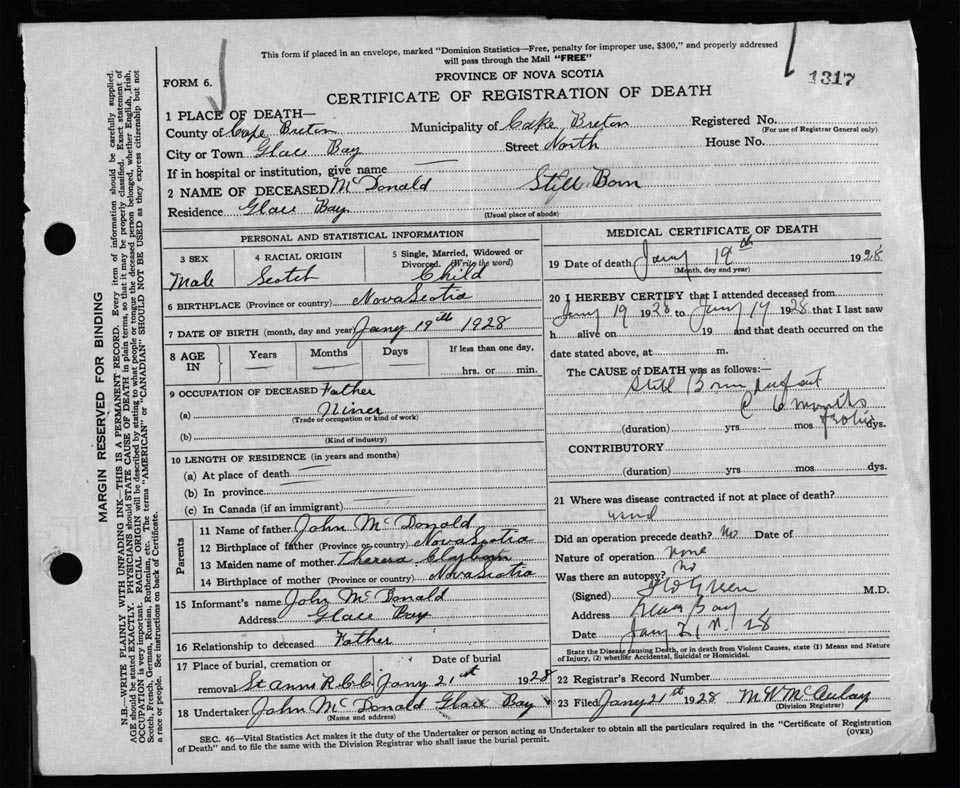 This form if placed in an envelope, marked "Dominion Statistics—Free, penalty for improper use, $300," and properly addressed
will pass through the Mail "FREE"
FORM 6.
PROVINCE OF NOVA SCOTIA
1317
CERTIFICATE OF REGISTRATION OF DEATH
1 PLACE OF DEATH—
County of Cape Breton Municipality of Cape Breton Registered No.
(For use of Registrar General only)
City or Town Glace Bay Street North House No.
If in hospital or institution, give name —
2 NAME OF DECEASED McDonald Still Born
Residence Glace Bay
(Usual place of abode)
PERSONAL AND STATISTICAL INFORMATION
3 SEX 4 RACIAL ORIGIN 5 Single, Married, Widowed or
Divorced. (Write the word)
Male Scotch Child
6 BIRTHPLACE (Province or country) Nova Scotia
7 DATE OF BIRTH (month, day and year) Jany 19th 1928
8 AGE IN Years Months Days If less than one day,
hrs. or min.
9 OCCUPATION OF DECEASED Father
(a) Miner
(Trade or occupation or kind of work)
(b)
(Kind of industry)
10 LENGTH OF RESIDENCE (in years and months)
(a) At place of death
(b) In province
(c) In Canada (if an immigrant)
Parents
11 Name of father John McDonald
12 Birthplace of father (Province or country) Nova Scotia
13 Maiden name of mother Theresa
14 Birthplace of mother (Province or country) Nova Scotia
15 Informant's name John McDonald
Address Glace Bay
16 Relationship to deceased Father
17 Place of burial, cremation or Date of burial
removal St Anns R.C.C. Jany 21st 1928
18 Undertaker John McDonald Glace Bay
(Name and address)
MEDICAL CERTIFICATE OF DEATH
19 Date of death Jany 19th 1928
(Month, day and year)
20 I HEREBY CERTIFY that I attended deceased from
Jany 19 1928 to Jany 19 1928 that I last saw
h alive on 19 and that death occurred on the
date stated above, at m.
The CAUSE of DEATH was as follows:—
Still Born infant
6 months
(duration) yrs. mos. dys.
CONTRIBUTORY
(duration) yrs. mos. dys.
21 Where was disease contracted if not at place of death?
Did an operation precede death? No Date of
Nature of operation None
Was there an autopsy? No
(Signed) Green M.D.
Address Glace Bay
Date Jany 21 28
State the Disease causing Death, or in death from Violent Causes, state (1) Means and Nature
of Injury, (2) whether Accidental, Suicidal or Homicidal.
22 Registrar's Record Number
23 Filed Jany 21st 1928 M W McAulay
(Division Registrar)
SEC. 46—Vital Statistics Act makes it the duty of the Undertaker or person acting as Undertaker to obtain all the particulars required in the "Certificate of Registration
of Death" and to file the same with the Division Registrar who shall issue the burial permit.
(OVER)
MARGIN RESERVED FOR BINDING
N.B.—WRITE PLAINLY WITH UNFADING INK—THIS IS A PERMANENT RECORD. Every item of information should be carefully supplied.
AGE should be stated EXACTLY. PHYSICIANS should STATE CAUSE OF DEATH in plain terms, so that it may be properly classified. Exact statement of
OCCUPATION is very important. RACIAL ORIGIN will be described by stating to what people or tongue the deceased person belonged, whether English, Irish,
Scotch, French, German, Russian, Ruthenian, etc. The terms "AMERICAN" or "CANADIAN" SHOULD NOT BE USED as they express citizenship but not
a race or people. See instructions on back of Certificate.